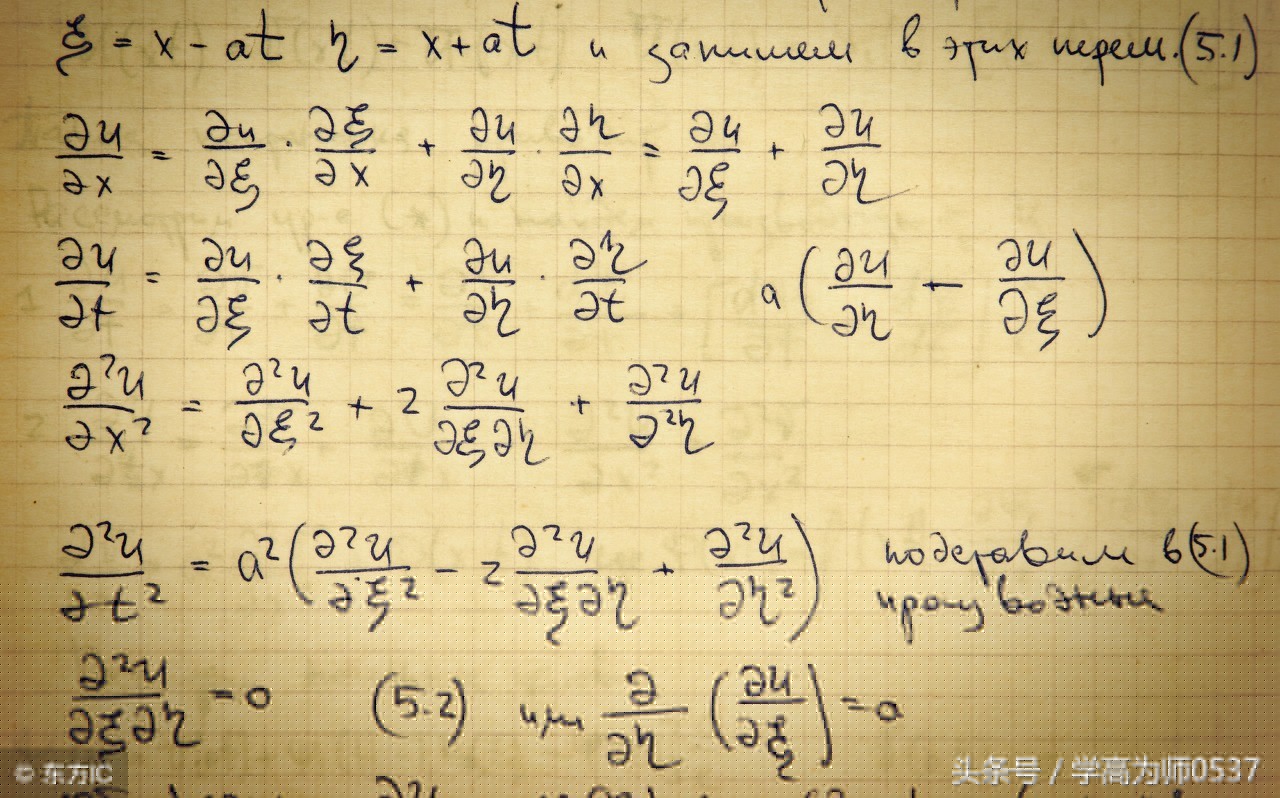 ξ = x - at η = x + at и запишем в этих перем. (5.1)
∂u/∂x = ∂u/∂ξ · ∂ξ/∂x + ∂u/∂η · ∂η/∂x = ∂u/∂ξ + ∂u/∂η
∂u/∂t = ∂u/∂ξ · ∂ξ/∂t + ∂u/∂η · ∂η/∂t a (∂u/∂η - ∂u/∂ξ)
∂²u/∂x² = ∂²u/∂ξ² + 2 ∂²u/∂ξ∂η + ∂²u/∂²η
∂²u/∂t² = a² (∂²u/∂ξ² - 2 ∂²u/∂ξ∂η + ∂²u/∂η²) подставим в (5.1)
производные
∂²u/∂ξ∂η = 0 (5.2) или ∂/∂η (∂u/∂ξ) = 0
© 东方IC
头条号 / 学高为师0537